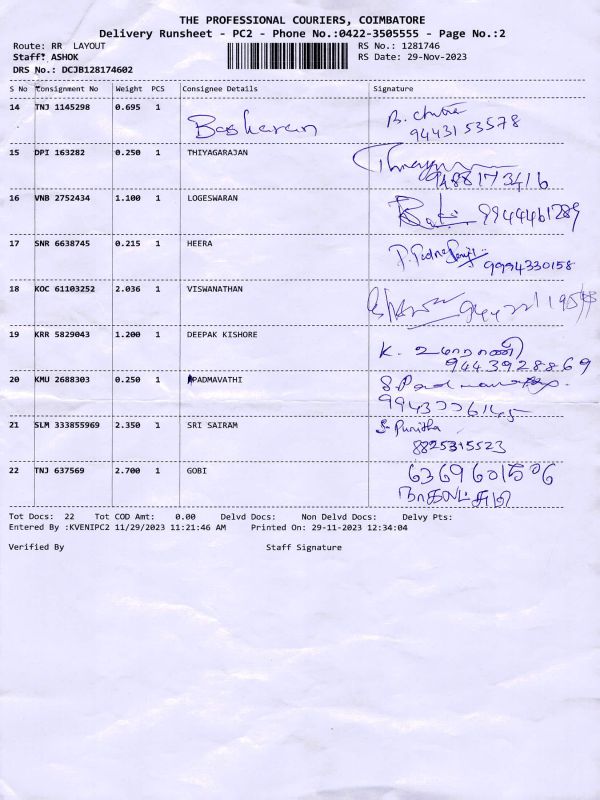 THE PROFESSIONAL COURIERS, COIMBATORE
Delivery Runsheet - PC2 - Phone No.:0422-3505555 - Page No.:2
Route: RR LAYOUT RS No.: 1281746
Staff: ASHOK RS Date: 29-Nov-2023
DRS No.: DCJB128174602
S No Consignment No Weight PCS Consignee Details Signature
14 TNJ 1145298 0.695 1 Baskaran B. Chitra
9443153578
15 DPI 163282 0.250 1 THIYAGARAJAN
9488173416
16 VNB 2752434 1.100 1 LOGESWARAN 9944461289
17 SNR 6638745 0.215 1 HEERA
9994330158
18 KOC 61103252 2.036 1 VISWANATHAN
19 KRR 5829043 1.200 1 DEEPAK KISHORE K. உமாராணி
9443928869
20 KMU 2688303 0.250 1 PADMAVATHI S. Padmavathy
9943776145
21 SLM 333855969 2.350 1 SRI SAIRAM S. Punitha
8825315523
22 TNJ 637569 2.700 1 GOBI 6369601506
நாகலட்சுமி
Tot Docs: 22 Tot COD Amt: 0.00 Delvd Docs: Non Delvd Docs: Delvy Pts:
Entered By :KVENIPC2 11/29/2023 11:21:46 AM Printed On: 29-11-2023 12:34:04
Verified By Staff Signature